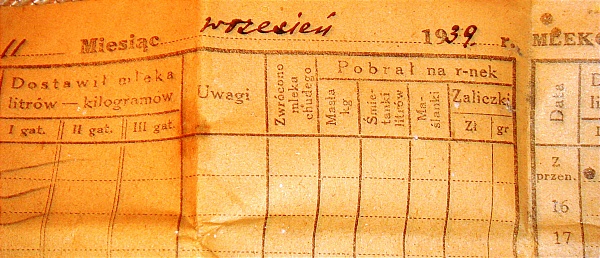 11 Miesiąc wrzesień 1939. r.
Dostawił mleka
litrów — kilogramów
I gat. II gat. III gat.
Uwagi
Zwrócono
mleka
chudego
Pobrał na r-nek
Masła
kg
Śmie-
tanki
litrów
Maś-
lanki
Zaliczki
Zł gr
MLEK
Data
D
li
I
Z
przen.
16
17